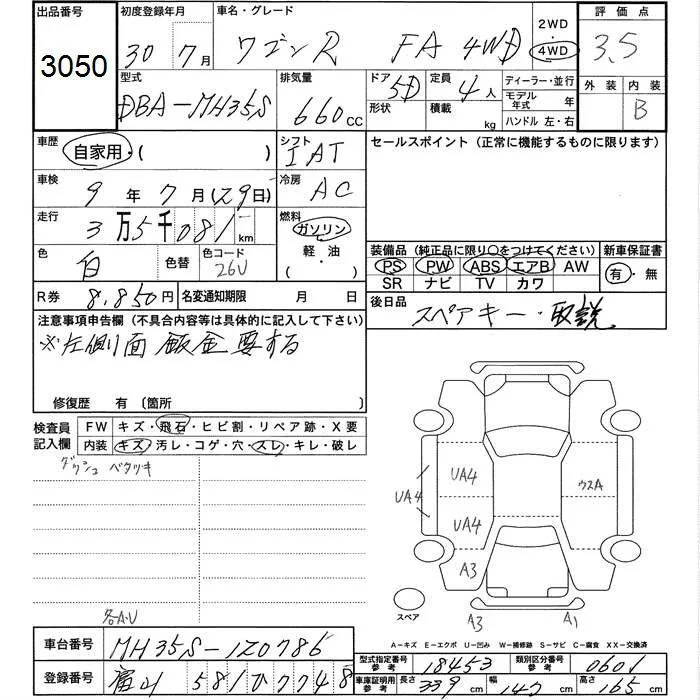 出品番号 3050
初度登録年月 30年 7月
車名・グレード ワゴンR FA 4WD
2WD
4WD
評価点 3.5
外装 内装 B
型式 DBA-MH35S
排気量 660 cc
ドア形状 5D
定員 4人
積載 kg
ディーラー・並行
モデル年式 年
ハンドル 左・右
車歴 自家用・( )
シフト IAT
セールスポイント(正常に機能するものに限ります)
車検 9年 7月(29日)
冷房 AC
走行 3万5千081 km
燃料 ガソリン
軽・油
( )
色 白 色替 色コード 26U
装備品(純正品に限り○をつけてください) 新車保証書
PS PW ABS エアB AW 有・無
SR ナビ TV カワ
R券 8,850円 名変通知期限 月 日
後日品 スペアキー・取説
注意事項申告欄(不具合内容等は具体的に記入して下さい)
※左側面 鈑金要する
修復歴 有 〔箇所 〕
検査員記入欄
FW キズ・飛石・ヒビ割・リペア跡・X要
内装 キズ・汚レ・コゲ・穴・スレ・キレ・破レ
ダッシュ ベタツキ
UA4 UA4 ウスA
UA4
A3
スペア A3 A1
各A.U
A-キズ E-エクボ U-凹み W-補修跡 S-サビ C-腐食 XX-交換済
車台番号 MH35S-120786
型式指定番号 参考 18453 類別区分番号 参考 0601
登録番号 富山 581ひ7748
車庫証明用 参考 長さ 339 cm 幅 147 cm 高さ 165 cm